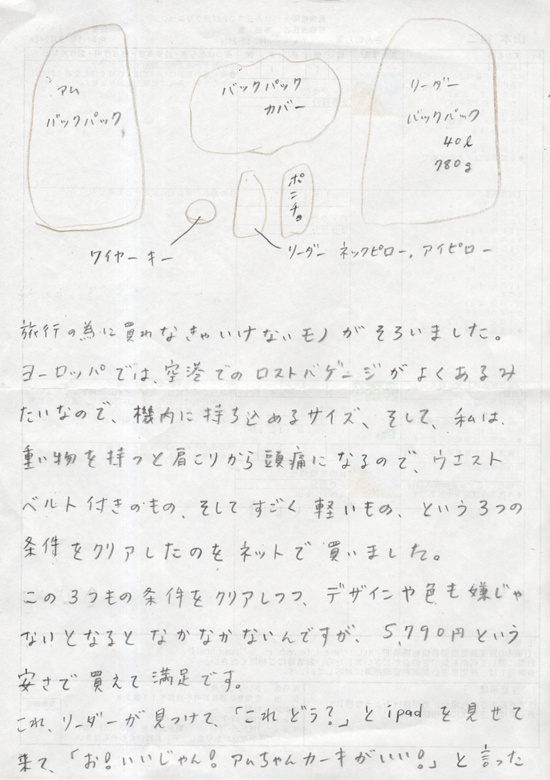 アム
バックパック
バックパック
カバー
リーダー
バックパック
40ℓ
780g
ポンチョ
ワイヤーキー
リーダー ネックピロー、アイピロー
旅行の為に買わなきゃいけないモノがそろいました。
ヨーロッパでは、空港でのロストバゲージがよくあるみ
たいなので、機内に持ち込めるサイズ、そして、私は、
重い物を持つと肩こりから頭痛になるので、ウエスト
ベルト付きのもの、そしてすごく軽いもの、という3つの
条件をクリアしたのをネットで買いました。
この3つもの条件をクリアしつつ、デザインや色も嫌じゃ
ないとなるとなかなかないんですが、5,790円という
安さで買えて満足です。
これ、リーダーが見つけて、「これどう?」とipadを見せて
来て、「お!いいじゃん!アムちゃんカーキがいい!」と言った